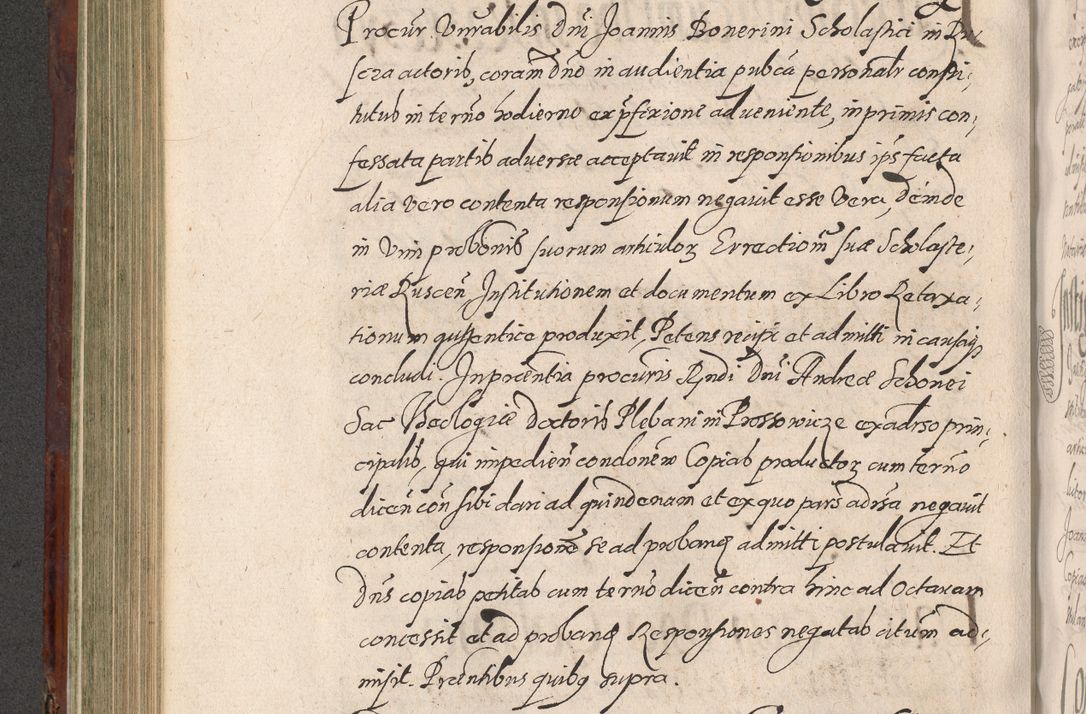 Procur Vnrabilis Dni Joannis Bonerini Scholastici in Ru
scza actoris, coram Dno in audientia pubca personalr consti,
tutus in terno hodierno ex pfixione adueniente, in primis con,
fessata partis aduersæ acceptauit in responsionibus ips facta
alia vero contenta responsionum negauit esse Vera, deinde
in Vim probonis suorum articulor Errectiom suæ Scholaste,
riæ Ruscen Institutionem et documentum ex Libro Retaxa,
tionum authentice produxit, Petens recipi et admitti in causaq
concludi. In præntia procuris Rndi Dni Andreæ Schonei
Sac Theologiæ Doctoris Plebani in Prossowicze ex adrso prin,
cipalis, qui impedien condonem Copias productor cum terno
dicen con sibi dari ad quindenam et ex quo pars adrsa negauit
contenta, responsione se ad proband admitti postulauit. Et
Dns copias petitas cum terno dicen contra hinc ad Octauam
concessit et ad proband Responsiones negatas citum ad,
misit. Præntibus quibus supra.